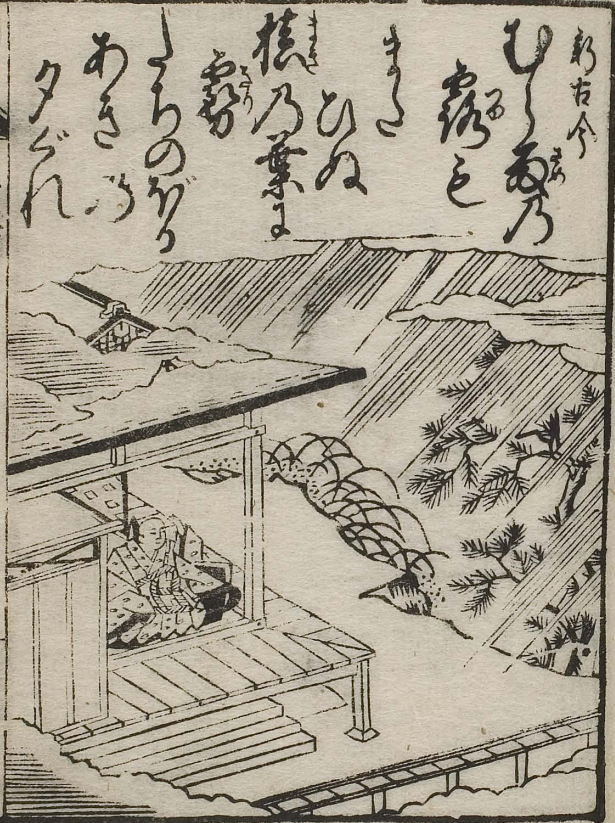 新古今
むら雨乃
露も
まだ
ひぬ
槙乃葉に
霧
たちのぼる
あきの
夕ぐれ